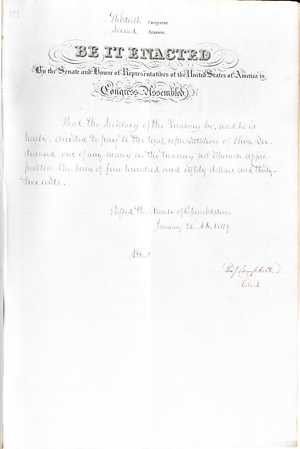 Thirtieth Congress
Second Session
BE IT ENACTED
By the Senate and House of Representatives of the United States of America in
Congress Assembled,
That the Secretary of the Treasury be, and he is
hereby, directed to pay to the legal representatives of
deceased, out of any money in the treasury not otherwise appro-
priated, the sum of five hundred and eighty dollars and thirty-
cents.
Passed the House of Representatives
January 26th 1849
Attest
Campbell
Clerk